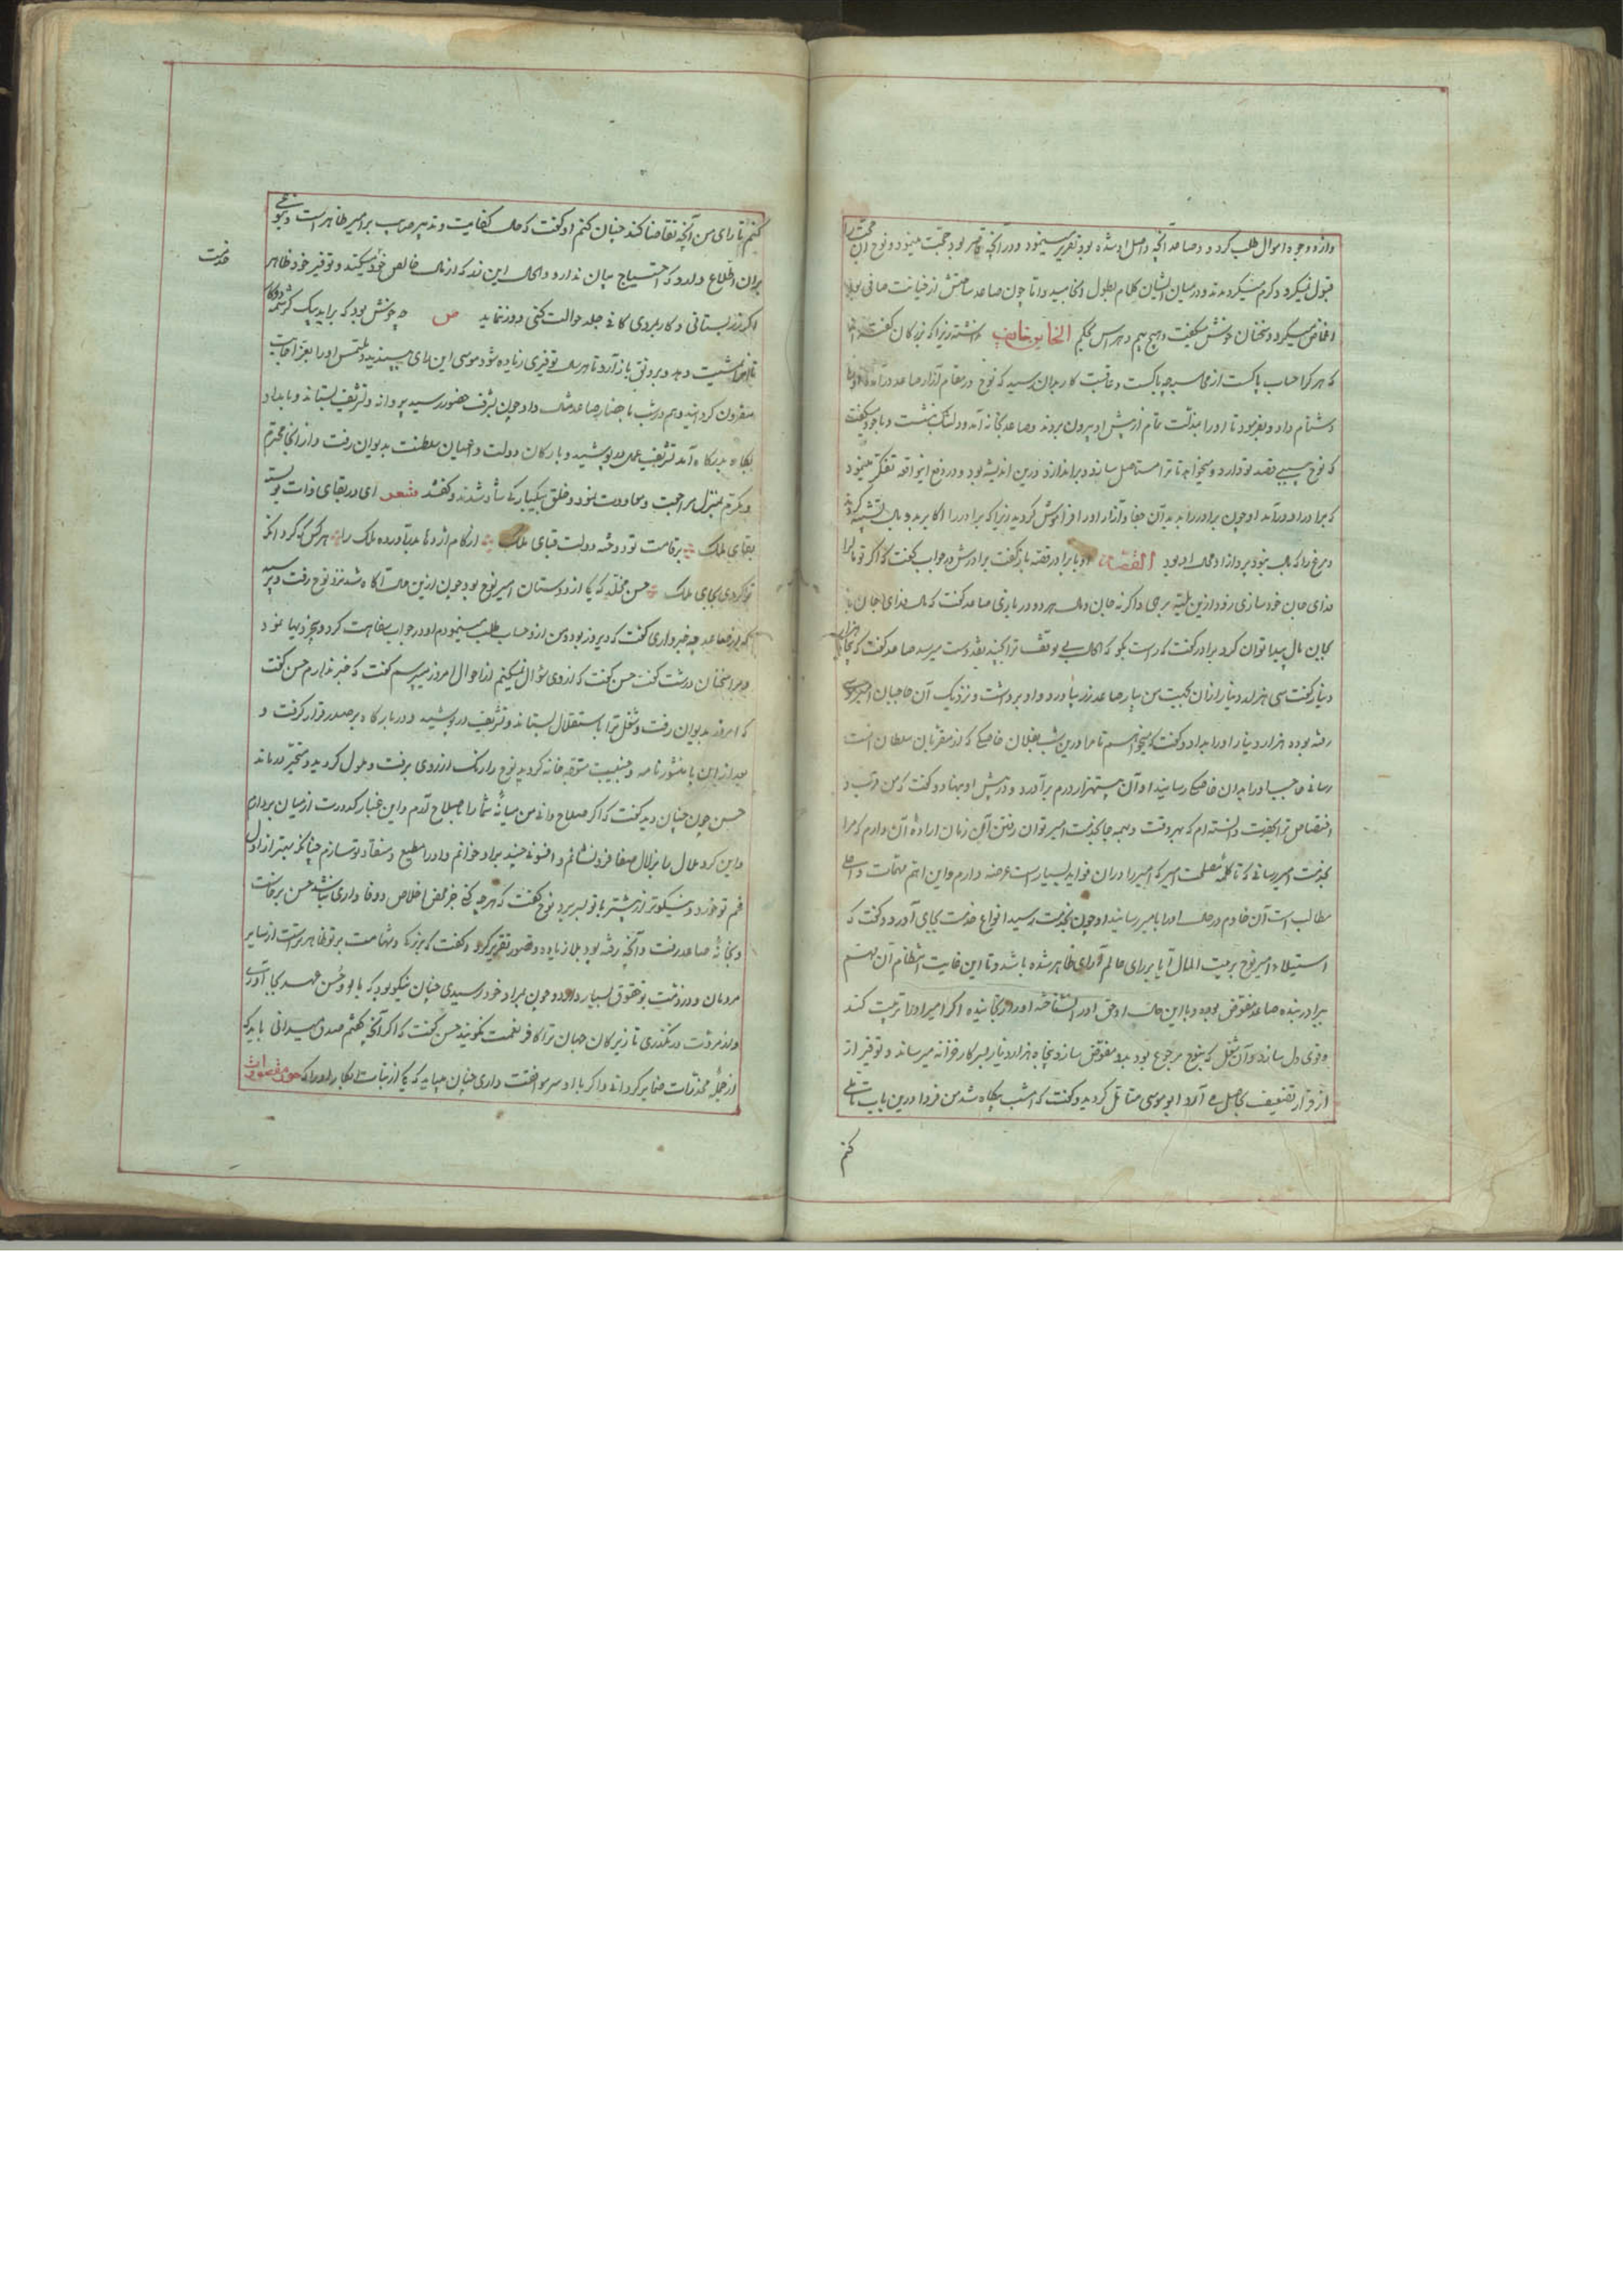 وازو وجوه اموال طلب کرد و صاعد آنچه واصل او شده بود تقریر مینمود و در آنچه قاصر بود حجت مینمود و نوح آن حجت را
قبول نمیکرد و کرم میکردند و در میان ایشان کلام بطول انجامید و اما چون صاعد ساحتش از خیانت صافی بود
اغماض نمیکرد و سخنان خوش میگفت و هیچ بیم و هراس بحکم الخاین خایف نداشت زیرا که بزرگان گفته اند
که هر کرا حساب پاکست از محاسبه چه باکست و عاقبت کار بدان رسید که نوح در مقام آزار صاعد درآمده او را
دشنام داد و بفرمود تا او را بمذلت تمام از پیش او بیرون بردند و صاعد بخانه آمد و دلتنگ بنشست و با خود میگفت
که نوح بسیی قصد تو دارد و میخواهد تا ترا مستاصل سازد و براندازد درین اندیشه بود و در دفع این واقعه تفکر مینمود
که برادر او درآمد او چون برادر را بدید آن جفا و آزار او را فراموش گردید زیرا که برادر را اکابر بدو بال تشبیه کرده اند
و مرغ را که بال نبود پرواز او محال بود القصه او با برادر قصه باز گفت برادرش در جواب گفت که اگر تو مال را
فدای جان خود سازی زود ازین بلیه برهی و اگر نه جان و مال هر دو در بازی صاعد گفت که مال فدای جان باد
بجان مال پیدا توان کرد برادر گفت که راست بگو که الحال بی توقف ترا بچند نقد دست میرسد صاعد گفت که پنجاه هزار
دینار گفت سی هزار دینار ازان بجهت من بیار صاعد زر بیاورد و او برداشت و نزدیک آن حاجبان امیر موسی
رفته بود ده هزار دینار او را بداد و گفت که میخواهم تا مرا درین شب بفلان خاصیکی که از مقربان سلطان است
رسانی حاجب او را بدان خاصیکی رسانید او آن بیست هزار درم برآورد و در پیش او بنهاد و گفت که من قرب و
اختصاص ترا بحضرت دانسته ام که بهر وقت و همه جا بخدمت امیر توان رفتن این زمان اراده آن دارم که مرا
بخدمت امیر رسانی که تا کلمه مصلحت امیر که امیر را در آن فواید بسیار است عرضه دارم و این اهم مهمات و اصل
مطالب است آن خادم در حال او را بامیر رسانید او چون بخدمت رسید انواع خدمت بجای آورد و گفت که
استیلاء امیر نوح بر بیت المال آیا بر رای عالم آرای ظاهر شده باشد و تا این غایت انتظام آن مهم
ببرادر بنده صاعد مفوض بود و با این حال او حق او را نشناخته او را رنجانیده اگر امیر او را تربیت کند
و قوی دل سازد و آن شغل که بنوح مرجوع بود بدو مفوض سازد پنجاه هزار دینار بسرکار خزانه میرساند و توفیر از
از قرار تضعیف بحاصل می آرد ابو موسی متامل گردید و گفت که امشب بیگاه شد من فردا درین باب تاملی
کنم
کنم تا رای من آنچه تقاضا کند چنان کنم او گفت که حال کفایت و تدبیر صاعد بر امیر ظاهر است و بنوعی
بران اطلاع دارد که احتیاج بیان ندارد و الحال این زر که از مال خالص خود میکند و توفیر خود ظاهر
خدمت
اگر زر بستانی و کار بروی کافی جلد حوالت کنی دور ننماید ص چه خوش بود که براید بیک کرشمه دو کار
تا خدمت دهد و برونق باز آرد تا هر سال توفیری زیاده شود موسی این رای بپسندید و ملتمس او را بعز اجابت
مقرون گردانید و هم در شب با حضار صاعد مثال داد چون بشرف حضور رسید پروانه و تشریف بستاند و بامداد
پگاه بدرگاه آمد تشریف عمل در پوشید و با ارکان دولت و اعیان سلطنت بدیوان رفت و از انجا محترم
و مکرم بمنزل مراجعت و معاودت نمود و خلق بیکبارگی شاد شدند و گفتند شعر ای در بقای ذات تو بسته
بقای ملک بر قامت تو دوخته دولت قبای ملک از کام اژدها بدر آورده ملک را هر کس که گرد آنکه
تو کردی بجای ملک حسن مخلد که یکی از دوستان امیر نوح بود چون ازین حال آگاه شد نزد نوح رفت و پرسید
که از صاعد چه خبر داری گفت که دیروز بود من ازو حساب طلب مینمودم او در جواب سفاهت کرد و تحریها نمود
و مرا سخنان درشت گفت حسن گفت که از وی سؤال نمیکنم از احوال امروز میپرسم گفت که خبر ندارم حسن گفت
که امروز بدیوان رفت و شغل ترا باستقلال بستاند و تشریف در پوشید و در بارگاه بر صدر قرار گرفت و
بعد ازین با منشور نامه و جنیبت متوجه خانه گردید نوح را رنگ از روی برفت و ملول گردید و متحیر درماند
حسن چون چنان دید گفت که اگر صلاح دانی من میانه شما را باصلاح آرم و این غبار کدورت از میان بردارم
و این گرد ملال را بزلال صفا فرو نشانم و افسونی چند براو خوانم و او را مطیع و منقاد تو سازم چنانکه بهتر از اول
غم تو خورد و نیکوتر از پیشتر با تو بسر برد نوح گفت که هر چه کنی جز محض اخلاص و وفاداری نباشد حسن برخاست
و بخانه صاعد رفت و آنچه رفته بود بلا زیاده و قصور تقریر کرد و گفت که بزرگی و شهامت بر تو ظاهر است از سایر
مردمان و در ذمت تو حقوق بسیار دارد و چون بمراد خود رسیدی چنان نیکو بود که با او حسن عهد بجا آوری
و از مروت در نگذری تا زیرکان جهان ترا کافر نعمت نگویند حسن گفت که اگر آنچه گفتم صدق میدانی باید که
از جمله مخدرات ضمایر گردانی و اگر با او سر موافقت داری چنان میباید که یکی از بنات ابکار او را که حور مقصورات